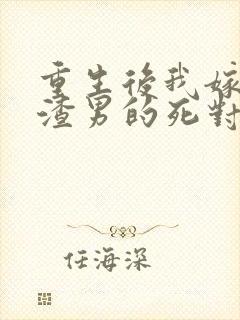 重生後我嫁
渣男的死對
任海深